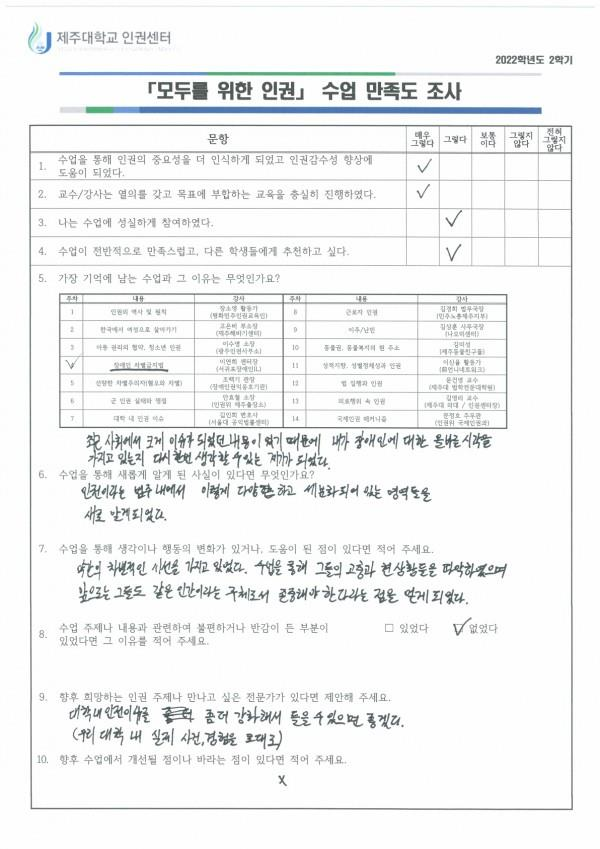 제주대학교 인권센터
2022학년도 2학기
「모두를 위한 인권」 수업 만족도 조사
문항 매우 그렇다 그렇다 보통 이다 그렇지 않다 전혀 그렇지 않다
1. 수업을 통해 인권의 중요성을 더 인식하게 되었고 인권감수성 향상에
도움이 되었다. ✓
2. 교수/강사는 열의를 갖고 목표에 부합하는 교육을 충실히 진행하였다. ✓
3. 나는 수업에 성실하게 참여하였다. ✓
4. 수업이 전반적으로 만족스럽고, 다른 학생들에게 추천하고 싶다. ✓
5. 가장 기억에 남는 수업과 그 이유는 무엇인가요?
주차 내용 강사 주차 내용 강사
1 인권의 역사 및 원칙 장소영 활동가 (평화민주인권교육인) 8 근로자 인권 김경희 법무국장 (민주노총제주지부)
2 한국에서 여성으로 살아가기 고은비 부소장 (제주해바기센터) 9 이주/난민 김상훈 사무국장 (나오미센터)
3 아동 권리의 협약, 청소년 인권 이수영 소장 (광주인권사무소) 10 동물권, 동물복지의 현 주소 김미성 (제주동물친구들)
4 장애인 차별금지법 이연희 센터장 (서귀포장애인IL) 11 성적지향, 성별정체성과 인권 이신율 활동가 (언니네트워크)
5 선량한 차별주의자(혐오와 차별) 조백기 관장 (장애인권익옹호기관) 12 법 집행과 인권 윤건영 교수 (제주대 법학전문대학원)
6 군 인권 실태와 쟁점 안효철 소장 (인권위 제주출장소) 13 의료행위 속 인권 김영리 교수 (제주대 의대 / 인권센터장)
7 대학 내 인권 이슈 김인희 변호사 (서울대 공익법률센터) 14 국제인권 메커니즘 문정호 주무관 (인권위 국제인권과)
최근 사회에서 크게 이슈가 되었던 내용이 였기 때문에 내가 장애인에 대한 올바른 시각을
가지고 있는지 다시한번 생각할 수 있는 계기가 되었다.
6. 수업을 통해 새롭게 알게 된 사실이 있다면 무엇인가요?
인권이라는 범주 내에서 이렇게 다양하고 세분화되어 있는 영역들을
새로 알게되었다.
7. 수업을 통해 생각이나 행동의 변화가 있거나, 도움이 된 점이 있다면 적어 주세요.
약간의 차별적인 시선을 가지고 있었다. 수업을 통해 그들의 고충과 현 상황들을 파악하였으며
앞으로는 그들도 같은 인간이라는 주체로서 존중해야 한다라는 점을 알게 되었다.
8. 수업 주제나 내용과 관련하여 불편하거나 반감이 든 부분이 □ 있었다 ☑ 없었다
있었다면 그 이유를 적어 주세요.
9. 향후 희망하는 인권 주제나 만나고 싶은 전문가가 있다면 제안해 주세요.
대학 내 인권이슈를 좀더 강화해서 들을 수 있으면 좋겠다.
(우리 대학 내 실제 사건, 경험을 토대로)
10. 향후 수업에서 개선될 점이나 바라는 점이 있다면 적어 주세요.
X